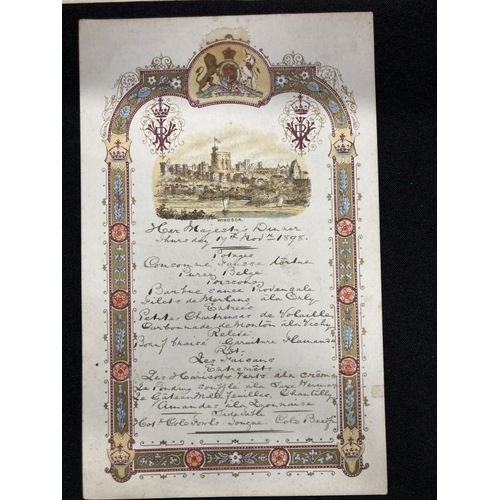 WINDSOR.
Her Majesty's Dinner
Thursday 17th Novbr 1898.
Potages
Consommé Fausse tortue
Purée Belge
Poissons
Barbue sauce Provençale
Filets de Merlans à la Orly
Entrées
Petites Chartreuses de Volailles
Carbonnade de Mouton à la Vichy
Relevé
Boeuf braisé Garniture Flamande
Rôt
Les Faisans
Entremêts
Les Haricots Verts à la crème
Le Pouding soufflé à la Saxe Weimar
Le Gâteau Mille feuilles, Chantilly
Amandes à la Lyonnaise
Sidetable
Hot & Cold Fowls - Tongue. Cold Beef